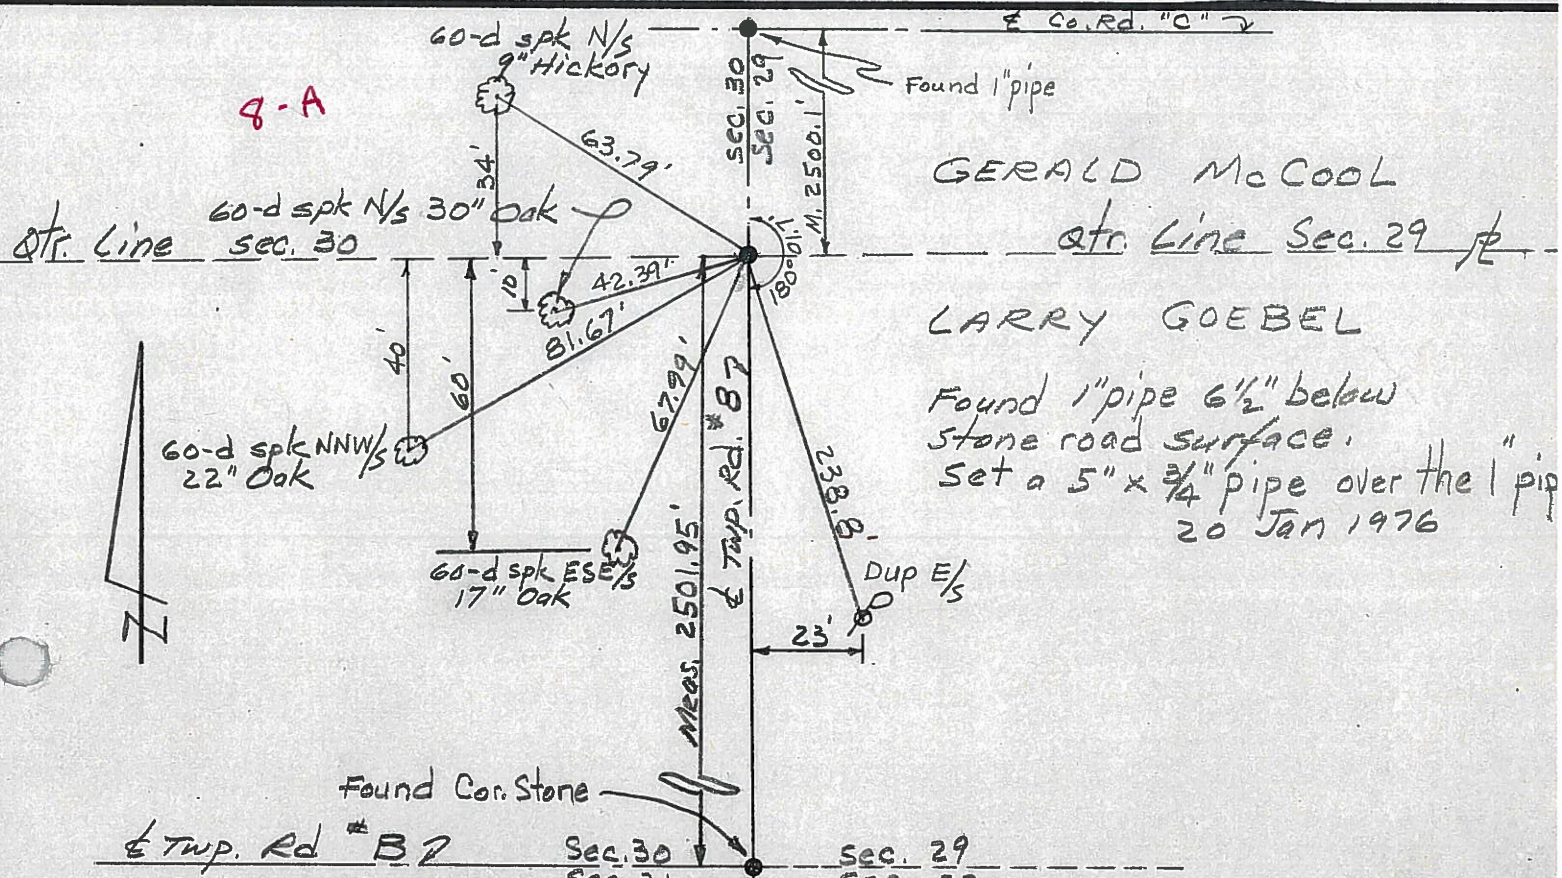 ℄ Co. Rd. "C"
60-d spk N/s
9" Hickory
Sec. 30
Sec. 29
M. 2500.1'
Found 1" pipe
8-A
63.79'
34'
GERALD McCOOL
60-d spk N/s 30" Oak
Qtr. Line Sec. 30
Qtr. Line Sec. 29 ⅊
180°01.1'
10'
42.39'
81.67'
40'
60'
67.99'
LARRY GOEBEL
Found 1" pipe 6½" below
stone road surface.
Set a 5" x ¾" pipe over the 1" pip
20 Jan 1976
60-d spk NNW/s
22" Oak
60-d spk ESE/s
17" Oak
Meas. 2501.95'
℄ Twp. Rd. #87
238.8'
Dup E/s
23'
N
Found Cor. Stone
℄ Twp. Rd #B7
Sec. 30
Sec. 29